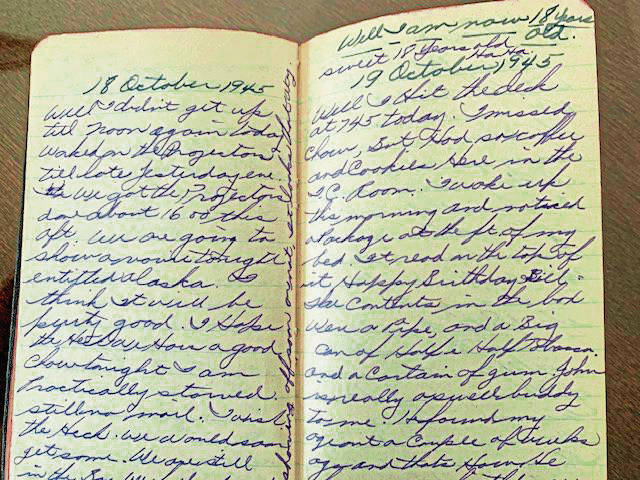 18 October 1945
Well I didn't get up
till Noon again today
Waked on the Projectors
till late Yesterday eve.
We got the Projectors
done about 1600 this
aft. We are going to
show a movie tonight
entitled Alaska. I
think it will be
purty good. I Hope
to Hell we Have a good
chow tonight I am
Practically starved.
still no mail. I wish
the Heck we would soon
get some. We are still
in the
Well I am now 18 Years
old.
sweet 18 Years old Ha Ha
19 October 1945
Well I Hit the deck
at 745 today. I missed
chow, but Had some coffee
and Cookies Here in the
I.C. Room. I woke up
this morning and noticed
a Package at the ft of my
bed I read on the top of
it Happy Birthday Bill.
The Contents in the box
Were a Pipe, and a Big
can of Half & Half Tobacco.
and a Cartain of gum. John
is really a swell buddy
to me. I informed my
age ant a Couple of weeks
ago and thats How He